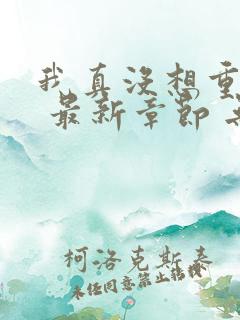 我真没想重
最新章节
柯洛克斯泰
未经同意禁止转载